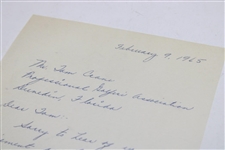 February 9, 1965
Mr. Tom Crane
Professional Golfers Association
Dunedin, Florida
Dear Tom:
Sorry to hear of